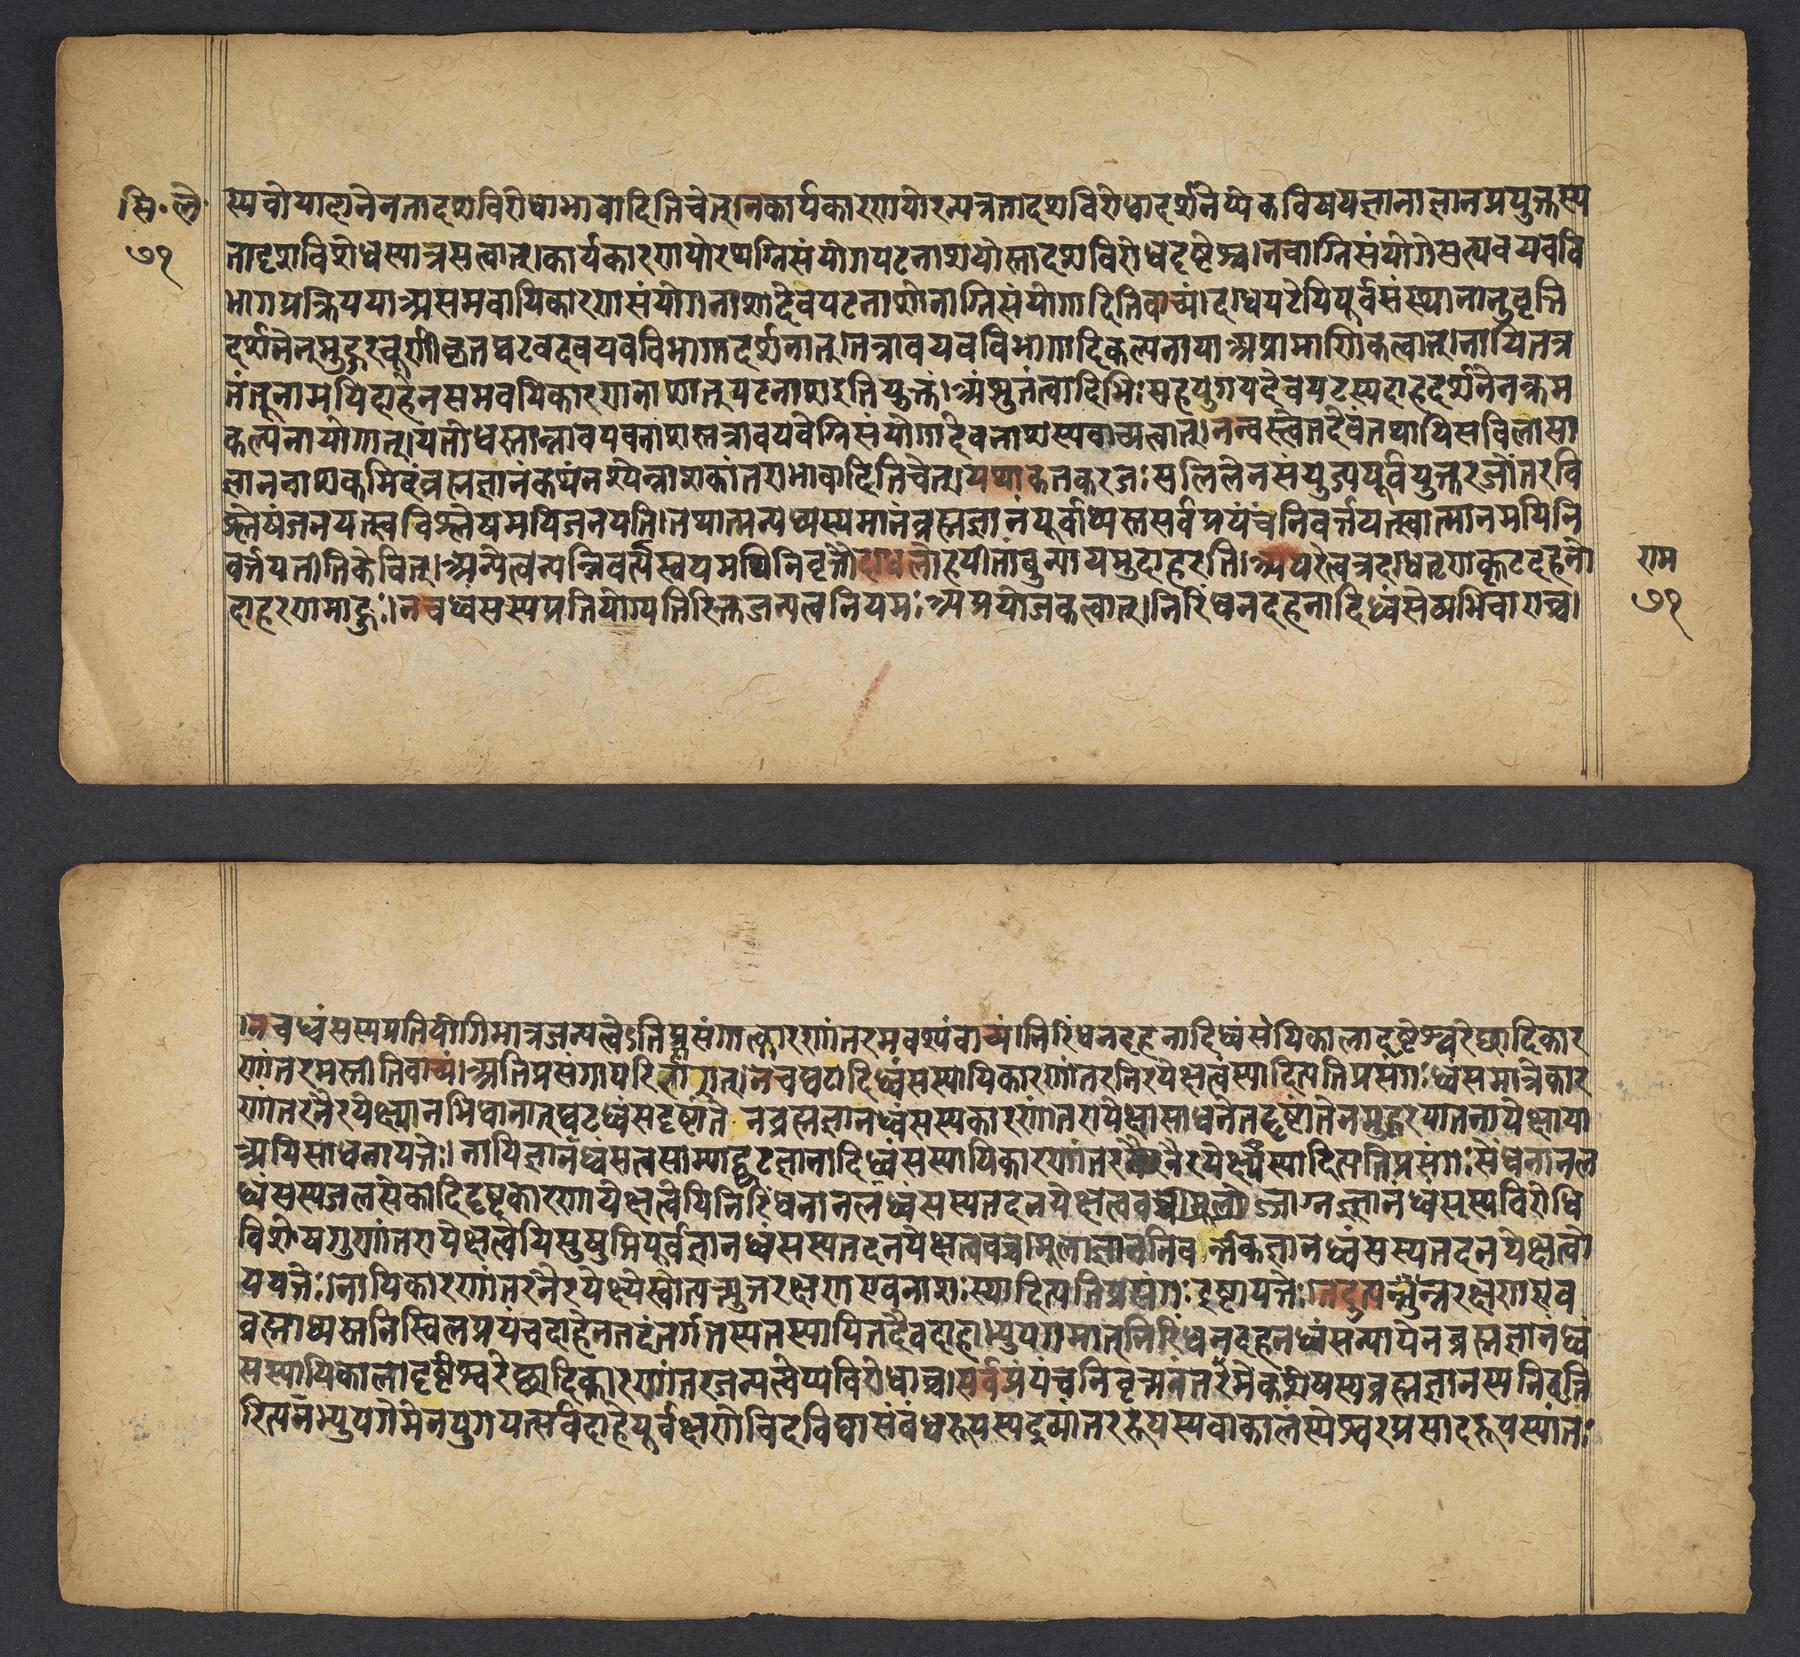 सि॰ले॰
७१
स्यचोपादानेनतादृशविरोधाभावादितिचेत्।नकार्यकारणयोरन्यत्रतादृशविरोधादर्शनेप्येकविषयज्ञानाज्ञानप्रयुक्तस्य
तादृशविरोधस्यात्रसत्वात्।कार्यकारणयोरप्यग्निसंयोगपटनाशयोस्तादृशविरोधदृष्टेश्च।नचाग्निसंयोगेसत्यवयववि
भागप्रक्रिययाअसमवायिकारणसंयोगनाशादेवपटनाशोनाग्निसंयोगादितिवाच्यं।दग्धपटेपिपूर्वसंस्थानानुवृत्ति
दर्शनेनमुद्गरचूर्णीकृतघटवदवयवविभागादर्शनात्।तत्रावयवविभागादिकल्पनायाअप्रामाणिकत्वात्।नापितत्र
तंतूनामपिदाहेनसमवायिकारणनाशात्पटनाशइतियुक्तं।अंशुतंत्वादिभिःसहयुगपदेवपटस्यदाहदर्शनेनक्रम
कल्पनायोगात्।यतोधस्तान्नावयवनाशस्तत्रावयवेग्निसंयोगादेवनाशस्यवाच्यत्वात्।नन्वस्त्वेतदेवंतथापिसविलासा
ज्ञाननाशकमिदंब्रह्मज्ञानंकथंनश्येन्नाशकांतराभावादितिचेत्।यथाकतकरजःसलिलेनसंयुज्यपूर्वयुक्तरजोंतरवि
श्लेषंजनयत्स्वविश्लेषमपिजनयति।तथात्मन्यध्यस्यमानंब्रह्मज्ञानंपूर्वाध्यस्तसर्वप्रपंचंनिवर्त्तयत्स्वात्मानमपिनि
वर्त्तयतीतिकेचित्।अन्येत्वन्यन्निवर्त्यस्वयमपिनिवृत्तौदग्धलोहपीतांबुन्यायमुदाहरंति।अपरेत्वत्रदग्धतृणकूटदहनो
दाहरणमाहुः।नचध्वंसस्यप्रतियोग्यतिरिक्तजन्यत्वनियमःअप्रयोजकत्वात्।निरिंधनदहनादिध्वंसेव्यभिचाराच्च।
राम
७१
।नचध्वंसस्यप्रतियोगिमात्रजन्यत्वेऽतिप्रसंगात्कारणांतरमवश्यंवाच्यं।निरिंधनदहनादिध्वंसेपिकालादृष्टेश्वरेच्छादिकार
णांतरमस्तीतिवाच्यं।अतिप्रसंगापरिज्ञानात्।नचघटादिध्वंसस्यापिकारणांतरनिरपेक्षत्वंस्यादित्यतिप्रसंगःध्वंसमात्रेकार
णांतरनैरपेक्ष्यानभिधानात्घटध्वंसदृष्टांतेनब्रह्मज्ञानध्वंसस्यकारणांतरापेक्षासाधनेतद्दृष्टांतेनमुद्गरपातनापेक्षाया
अपिसाधनापत्तेः।नापिज्ञानध्वंसत्वसाम्याद्घटज्ञानादिध्वंसस्यापिकारणांतरनैरपेक्ष्यंस्यादित्यतिप्रसंगःसेंधनानल
ध्वंसस्यजलसेकादिदृष्टकारणापेक्षत्वेपिनिरिंधनानलध्वंसस्यतदनपेक्षत्ववज्जाग्रज्ज्ञानध्वंसस्यविरोधि
विशेषगुणांतरापेक्षत्वेपिसुषुप्तिपूर्वज्ञानध्वंसस्यतदनपेक्षत्ववच्चमूलाज्ञाननिवर्त्तकज्ञानध्वंसस्यतदनपेक्षत्वो
पपत्तेः।नापिकारणांतरनैरपेक्ष्येस्वोत्पत्त्युत्तरक्षणएवनाशःस्यादित्यतिप्रसंगःइष्टापत्तेः।तदुत्पत्त्युत्तरक्षणएव
ब्रह्माध्यस्तनिखिलप्रपंचदाहेनतदंतर्गतस्यतस्यापितदैवदाहाभ्युपगमात्निरिंधनदहनध्वंसन्यायेनब्रह्मज्ञानध्वं
सस्यापिकालादृष्टेश्वरेच्छादिकारणांतरजन्यत्वेप्यविरोधाच्च।सर्वप्रपंचनिवृत्त्यनंतरमेकशेषस्यब्रह्मज्ञानस्यनिवृत्ति
रित्यनभ्युपगमेनयुगपत्सर्वदाहेपूर्वक्षणेचिदविद्यासंबंधरूपस्यद्रव्यांतररूपस्यवाकालस्येश्वरप्रसादरूपस्यांतः